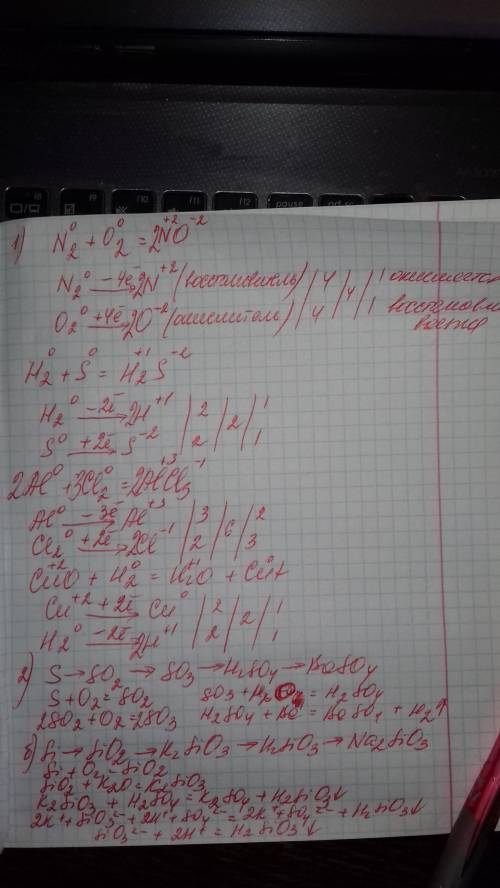 1) N₂⁰ + O₂⁰ = 2N⁺²O⁻²
N₂⁰ –4e⁻→ 2N⁺² (восстановитель) | 4 | 4 | 1 окисляется
O₂⁰ +4e⁻→ 2O⁻² (окислитель) | 4 | | 1
H₂⁰ + S⁰ = H₂⁺¹S⁻²
H₂⁰ –2e⁻→ 2H⁺¹ | 2 | 2 | 1
S⁰ +2e⁻→ S⁻² | 2 | | 1
2Al⁰ + 3Cl₂⁰ = 2Al⁺³Cl₃⁻¹
Al⁰ –3e⁻→ Al⁺³ | 3 | 6 | 2
Cl₂⁰ +2e⁻→ 2Cl⁻¹ | 2 | | 3
Cu⁺²O + H₂⁰ = H₂⁺¹O + Cu⁰
Cu⁺² +2e⁻→ Cu⁰ | 2 | 2 | 1
H₂⁰ –2e⁻→ 2H⁺¹ | 2 | | 1
2) S → SO₂ → SO₃ → H₂SO₄ → BaSO₄
S + O₂ = SO₂ SO₃ + H₂O = H₂SO₄
2SO₂ + O₂ = 2SO₃ H₂SO₄ + Ba = BaSO₄ + H₂↑
б) Si → SiO₂ → K₂SiO₃ → H₂SiO₃ → Na₂SiO₃
Si + O₂ = SiO₂
SiO₂ + K₂O = K₂SiO₃
K₂SiO₃ + H₂SO₄ = K₂SO₄ + H₂SiO₃↓
2K⁺ + SiO₃²⁻ + 2H⁺ + SO₄²⁻ = 2K⁺ + SO₄²⁻ + H₂SiO₃↓
SiO₃²⁻ + 2H⁺ = H₂SiO₃↓